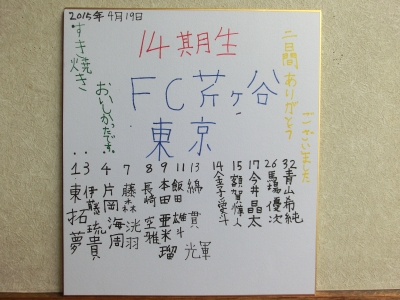 2015年4月19日
14期生
FC芹ヶ谷
東京
二日間ありがとう
ございました
すき焼き
おいしかったです。
1 東 拓夢
3 伊藤琉貴
4 片岡海周
7 藤森洸羽
8 長崎空雅
9 本田亜米瑠
11 飯田雄斗
13 綿貫光軍
14 金子愛斗
15 額賀惇人
17 今井晶太
26 馬場優次
32 青山希純